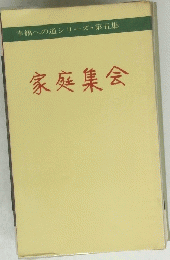 幸福への道シリーズ・第五集
家庭集会